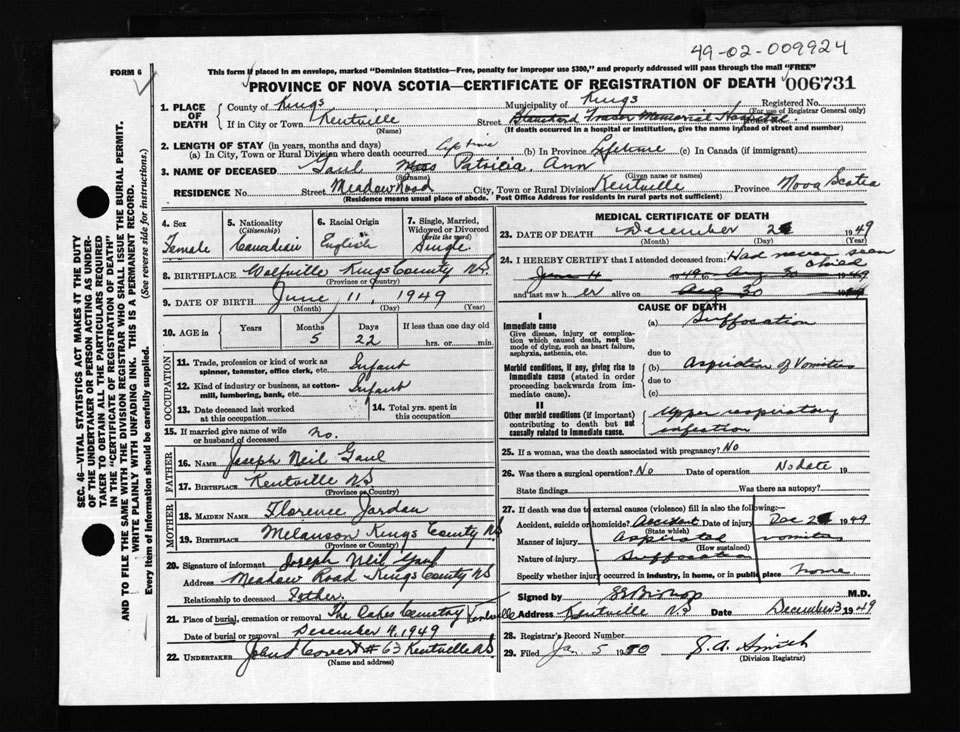 49-02-009924
FORM 6
This form if placed in an envelope, marked "Dominion Statistics—Free, penalty for improper use $300," and properly addressed will pass through the mail "FREE"
PROVINCE OF NOVA SCOTIA—CERTIFICATE OF REGISTRATION OF DEATH 006731
1. PLACE OF DEATH County of Kings Municipality of Kings Registered No.
(For use of Registrar General only)
If in City or Town Kentville Street Blanchard Fraser Memorial Hospital
(Name) (If death occurred in a hospital or institution, give the name instead of street and number)
2. LENGTH OF STAY (in years, months and days)
(a) In City, Town or Rural Division where death occurred life time (b) In Province Lifetime (c) In Canada (if immigrant)
3. NAME OF DECEASED Gaul Patricia Ann
(Surname) (Given name or names)
RESIDENCE No. Street Meadow Road City, Town or Rural Division Kentville Province Nova Scotia
(Residence means usual place of abode. Post Office Address for residents in rural parts not sufficient)
4. Sex Female
5. Nationality (Citizenship) Canadian
6. Racial Origin English
7. Single, Married, Widowed or Divorced (Write the word) Single
8. BIRTHPLACE Wolfville Kings County NS.
(Province or Country)
9. DATE OF BIRTH June 11, 1949
(Month) (Day) (Year)
10. AGE in Years Months 5 Days 22 If less than one day old hrs. or min.
OCCUPATION
11. Trade, profession or kind of work as spinner, teamster, office clerk, etc. Infant
12. Kind of industry or business, as cotton-mill, lumbering, bank, etc. Infant
13. Date deceased last worked at this occupation
14. Total yrs. spent in this occupation
15. If married give name of wife or husband of deceased no.
FATHER
16. NAME Joseph Neil Gaul
17. BIRTHPLACE Kentville NS
(Province or Country)
MOTHER
18. MAIDEN NAME Florence Jordan
19. BIRTHPLACE Melanson Kings County NS
(Province or Country)
20. Signature of informant Joseph Neil Gaul
Address Meahaw Road Kings County NS
Relationship to deceased Father.
21. Place of burial, cremation or removal The Oakes Cemetry Kentville
Date of burial or removal December 4, 1949
22. UNDERTAKER # 63 Kentville NS
(Name and address)
MEDICAL CERTIFICATE OF DEATH
23. DATE OF DEATH December 2 1949
(Month) (Day) (Year)
24. I HEREBY CERTIFY that I attended deceased from: Had never seen child
June 14 1949 to Aug 30 1949
and last saw her alive on Aug 30 19
CAUSE OF DEATH
I
Immediate cause
Give disease, injury or complication which caused death, not the mode of dying, such as heart failure, asphyxia, asthenia, etc.
(a) Suffocation
due to
Morbid conditions, if any, giving rise to immediate cause (stated in order proceeding backwards from immediate cause).
(b) Aspiration of Vomitus
due to
(c)
II
Other morbid conditions (if important) contributing to death but not causally related to immediate cause.
Upper respiratory infection
25. If a woman, was the death associated with pregnancy? NO
26. Was there a surgical operation? No Date of operation No date 19
State findings Was there an autopsy?
27. If death was due to external causes (violence) fill in also the following:—
Accident, suicide or homicide? Accident Date of injury Dec 2 1949
(State which)
Manner of injury Aspirated vomitus
(How sustained)
Nature of injury Suffocation
Specify whether injury occurred in industry, in home, or in public place home
Signed by SE Bishop M.D.
Address Kentville NS Date December 3 1949
28. Registrar's Record Number
29. Filed Jan. 5 1950 Smith
(Division Registrar)
SEC. 46—VITAL STATISTICS ACT MAKES IT THE DUTY
OF THE UNDERTAKER OR PERSON ACTING AS UNDER-
TAKER TO OBTAIN ALL THE PARTICULARS REQUIRED
IN THE "CERTIFICATE OF REGISTRATION OF DEATH"
AND TO FILE THE SAME WITH THE DIVISION REGISTRAR WHO SHALL ISSUE THE BURIAL PERMIT.
WRITE PLAINLY WITH UNFADING INK. THIS IS A PERMANENT RECORD.
Every item of Information should be carefully supplied. (See reverse side for instructions.)